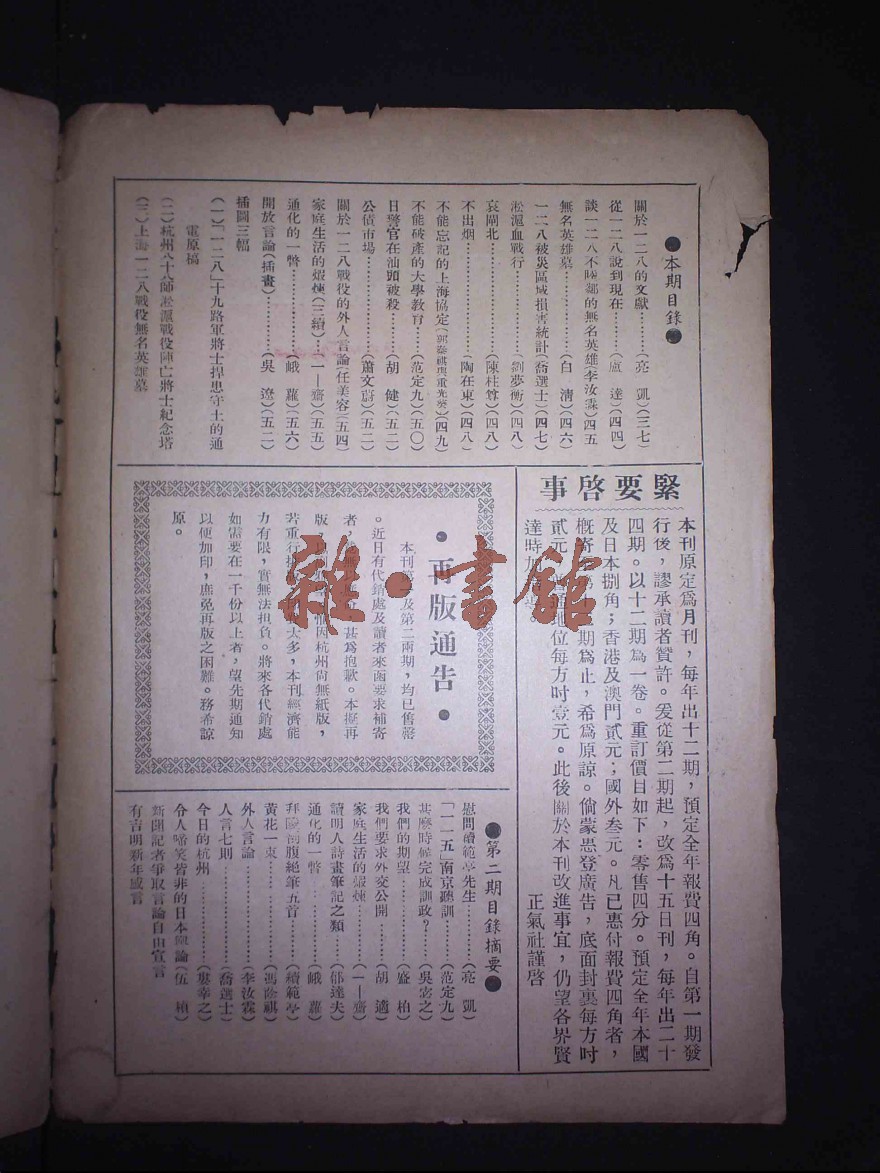 ●本期目錄●
關於一二八的文獻………(亮 凱)(三七)
從一二八說到現在………(盧 達)(四四)
談一二八不陣鄉的無名英雄(李汝霖)(四五)
無名英雄墓………(白 清)(四六)
一二八被災區域損害統計(喬選士)(四七)
淞滬血戰行………(劉夢衡)(四八)
哀閘北………(陳柱尊)(四八)
不出烟………(陶在東)(四八)
不能忘記的上海協定(郭泰祺與重光葵)(四九)
不能破產的大學教育………(范定九)(五〇)
日警官在汕頭被殺………(胡 健)(五二)
公債市場………(蕭文蔚)(五二)
關於一二八戰役的外人言論(任美容)(五四)
家庭生活的煆煉(三續)…(一|齋)(五五)
通化的一瞥………(峨 蘿)(五六)
開放言論(插畫)………(吳 遼)(五二)
插圖三幅
(一)「一二八」十九路軍將士捍患守土的通
電原稿
(二)杭州八十八師淞滬戰役陣亡將士紀念塔
(三)上海一二八戰役無名英雄墓
緊要啓事
本刊原定爲月刊,每年出十二期,預定全年報費四角。自第一期發
行後,謬承讀者贊許。爰從第二期起,改爲十五日刊,每年出二十
四期。以十二期爲一卷。重訂價目如下:零售四分。預定全年本國
及日本捌角;香港及澳門貳元;國外叁元。凡已惠付報費四角者,
概寄 期爲止,希爲原諒。倘蒙惠登廣告,底面封裏每方吋
貳元 通地位每方吋壹元。此後關於本刊改進事宜,仍望各界賢
達時
正氣社謹啓
•再版通告•
本刊 及第二兩期,均已售罄
。近日有代銷處及讀者來函要求補寄
者, 甚爲抱歉。本擬再
版 因杭州尚無紙版,
若重行 太多,本刊經濟能
力有限,實無法担負。將來各代銷處
如需要在一千份以上者,望先期通知
以便加印,庶免再版之困難。務希諒
原。
●第二期目錄摘要●
慰問續範亭先生………(亮 凱)
「一一五」南京聽訓………(范定九)
甚麼時候完成訓政?………(吳宓之)
我們的期望………(盛 柏)
我們要求外交公開………(胡 適)
家庭生活的煆煉………(一|齋)
讀明人詩畫筆記之類………(郁達夫)
通化的一瞥………(峨 蘿)
拜陵剖腹絕筆五首………(續範亭)
黃花一束………(馮飾祺)
外人言論………(李汝霖)
人言七則………(喬選士)
今日的杭州………(婁幸之)
令人啼笑皆非的日本輿論(伍 楨)
新聞記者爭取言論自由宣言
有吉明新年感言
雜·書館